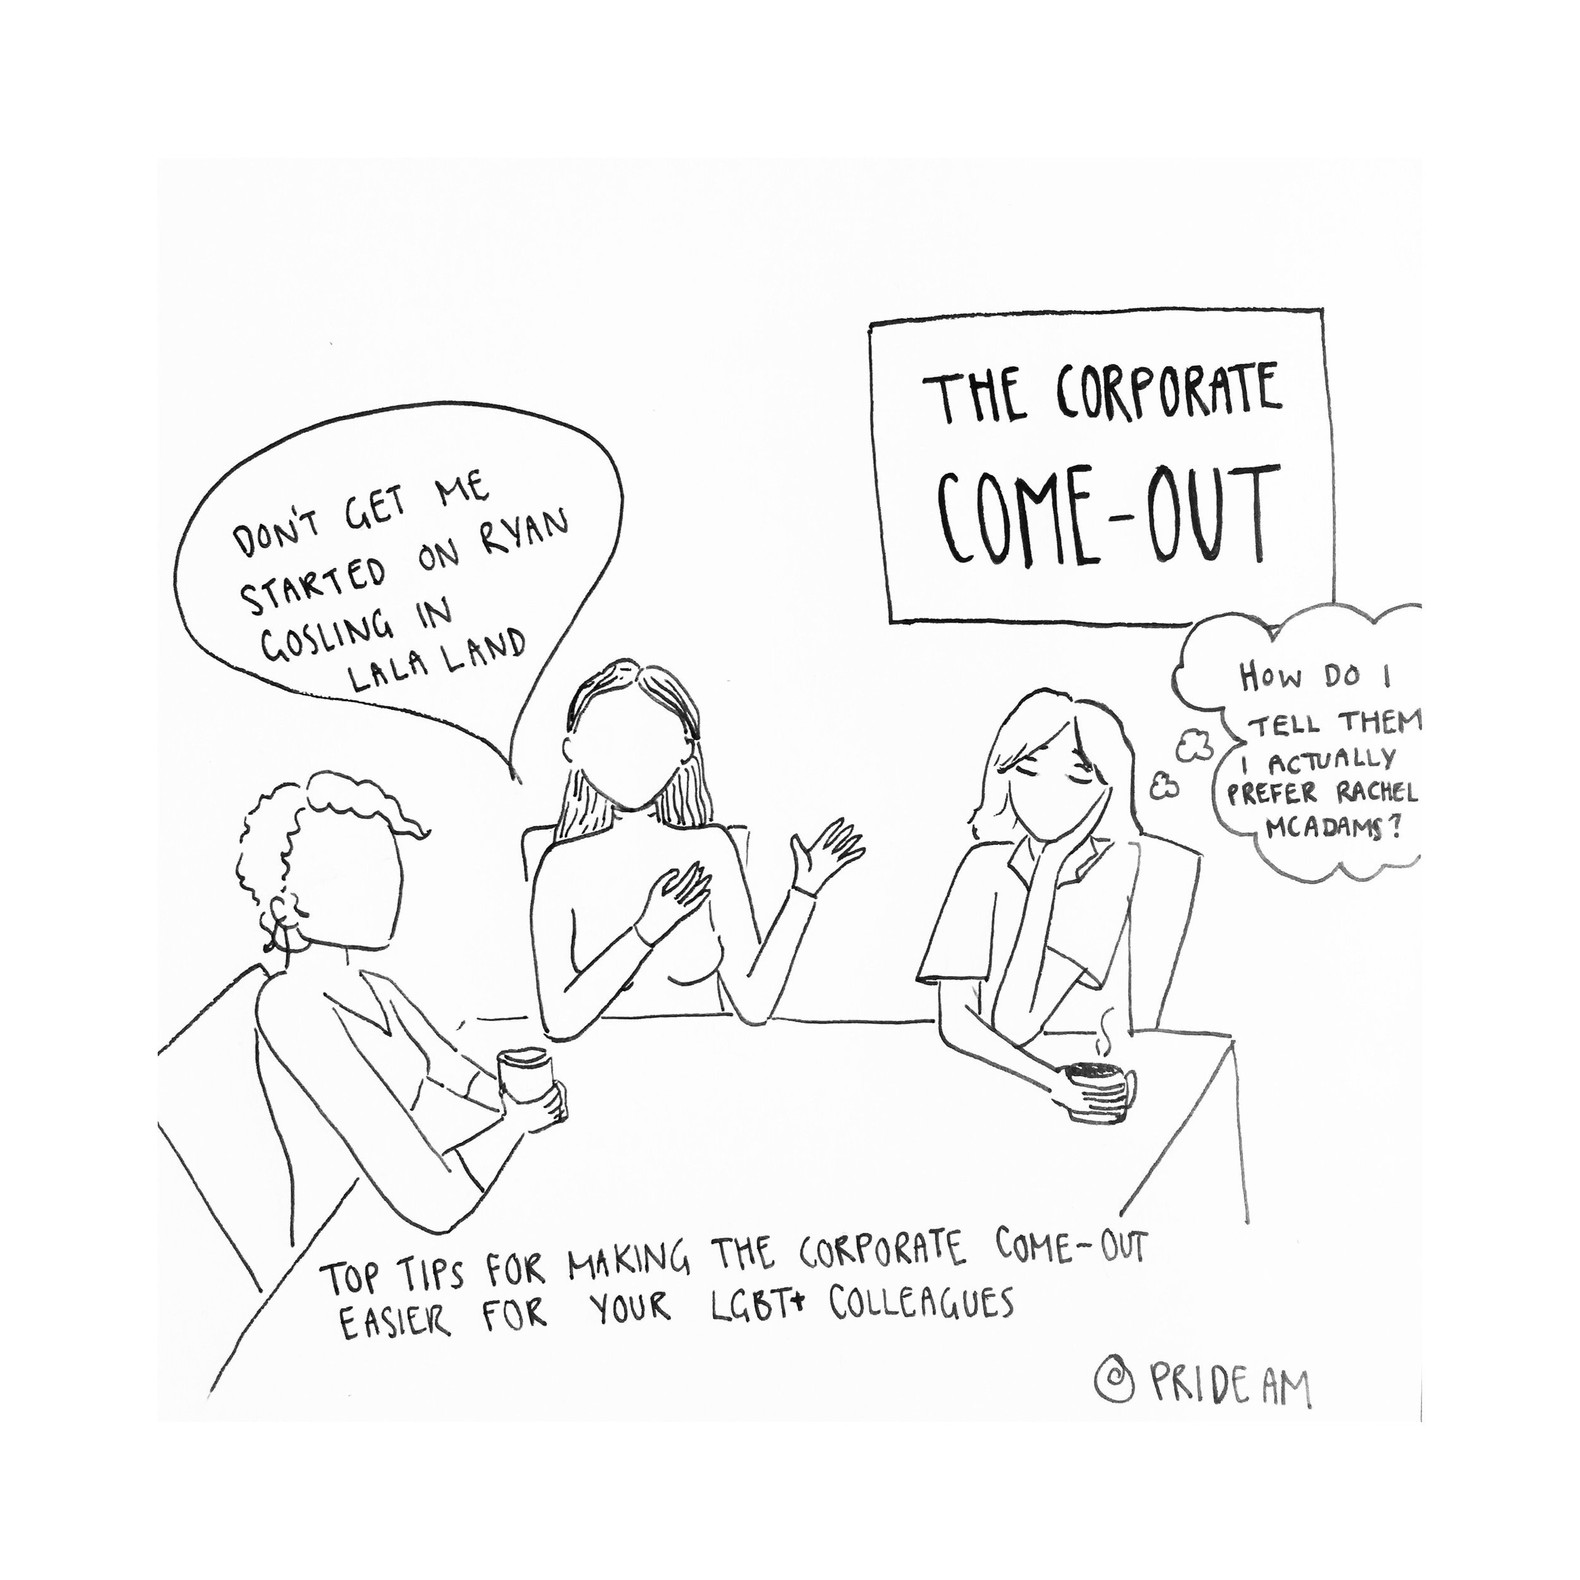 THE CORPORATE
COME-OUT
DON'T GET ME
STARTED ON RYAN
GOSLING IN
LALA LAND
HOW DO I
TELL THEM
I ACTUALLY
PREFER RACHEL
MCADAMS?
TOP TIPS FOR MAKING THE CORPORATE COME-OUT
EASIER FOR YOUR LGBT+ COLLEAGUES
@ PRIDE AM